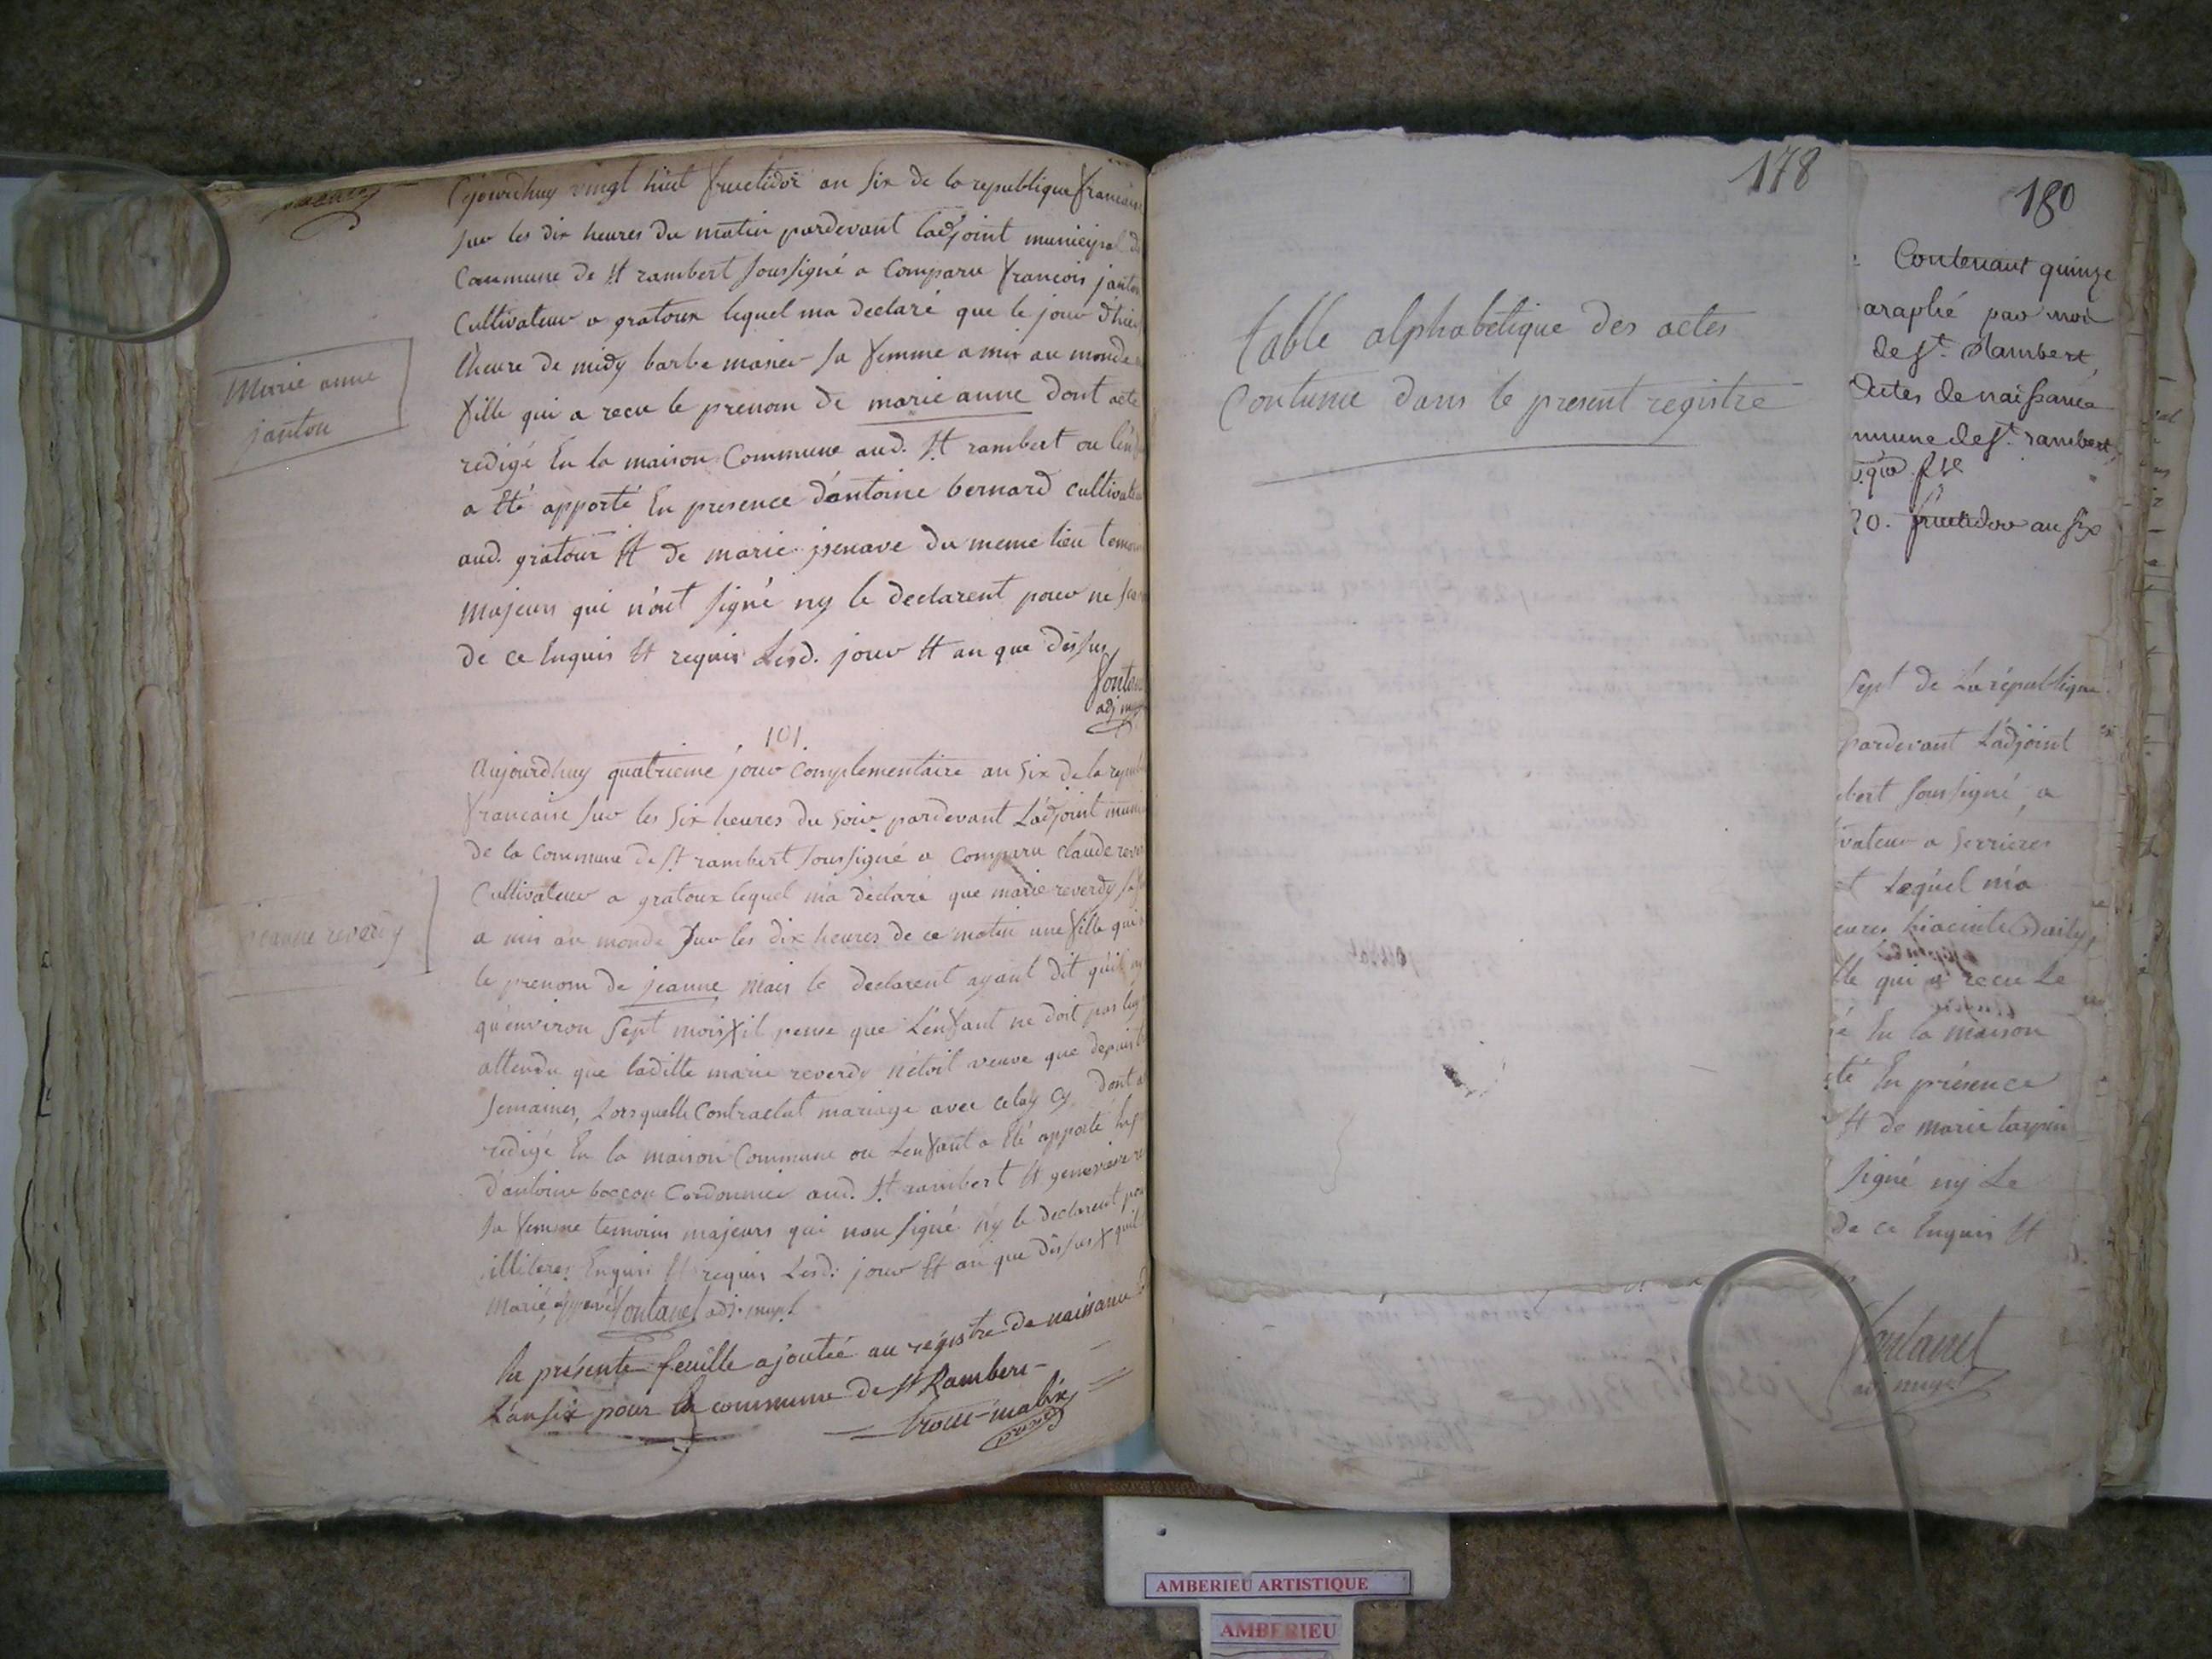 Cjourdhuy vingt huit fructidor an six de la republique francais
sur les dix heures du matin pardevant ladjoint municipal de
Commune de St rambert soussigné a Comparu francois janton
Cultivateur a gratoux lequel ma declaré que le jour d'hier
lheure de midy barbe masier sa femme a mis au monde
fille qui a recu le prenom de marie anne dont acte
redigé En la maison Commune aud. St rambert ou len
a Eté apporté En presence d'antoine bernard cultivate
aud. gratoux Et de marie du meme lieu temoin
majeurs qui n'ont signé ny le declarent pour ne
de ce Enquis Et requis Lesd. jour Et an que dessus
fontan
adj m
Marie anne
janton
101.
Aujourdhuy quatrieme jour Complementaire an six de la repu
francaise sur les six heures du soir pardevant L'adjoint muni
de la Commune de St rambert soussigné a Comparu claude rever
Cultivateur a gratoux lequel m'a déclaré que marie reverdy sa
a mis au monde sur les dix heures de ce matin une fille qui
le prenom de jeanne mais le declarent ayant dit qu'il
qu'environ sept mois x il pense que L'enfant ne doit pas
attendu que laditte marie reverdy n'étoit veuve que depuis
semaines, Lorsquelle Contractat mariage avec celuy cy dont a
redigé En la maison Commune ou Lenfant a Eté apporté En
d'antoine boccon Cordonnier aud. St rambert Et genevieve
sa femme temoins majeurs qui non signé ny le declarent pou
illiteres Enquis Et requis Lesd: jour Et an que dessus x quil
marié, approuvé fontanel adj. mupl.
jeanne reverdy
La présente feuille ajoutée au régistre de naissance d
L'an six pour la commune de St Rambert
trocu-malix
178
table alphabetique des actes
Contenue dans le present registre
180
Contenant quinze
araphé par moi
de St. Rambert,
Actes de naissance
mmune de St. rambert,
20. fructidor an six
sept de La république
pardevant L'adjoint
bert soussigné, a
vateur a serrieres
t Lequel m'a
eures hiacinte
lle qui a recu Le
gé En la maison
té En présence
Et de marie tarpin
signé ny Le
de ce Enquis Et
fontanel
adj mupl
AMBERIEU ARTISTIQUE
AMBERIEU